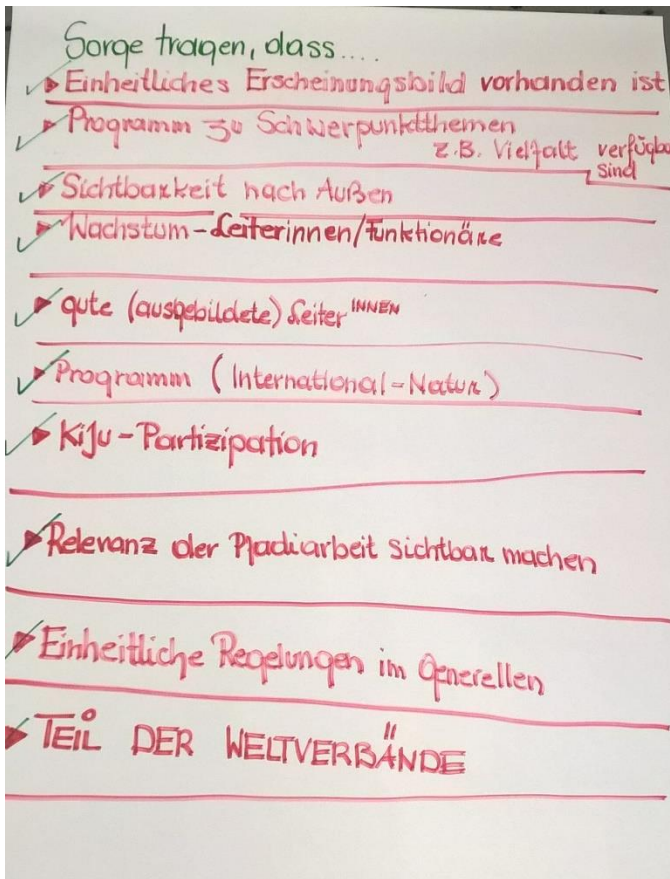 Sorge tragen, dass....
Einheitliches Erscheinungsbild vorhanden ist
Programm zu Schwerpunktthemen
z.B. Vielfalt verfügba
sind
Sichtbarkeit nach Außen
Wachstum-Leiterinnen/Funktionäre
gute (ausgebildete) Leiter INNEN
Programm (International-Natur)
KiJu-Partizipation
Relevanz der Pfadiarbeit sichtbar machen
Einheitliche Regelungen im Generellen
TEIL DER WELTVERBÄNDE